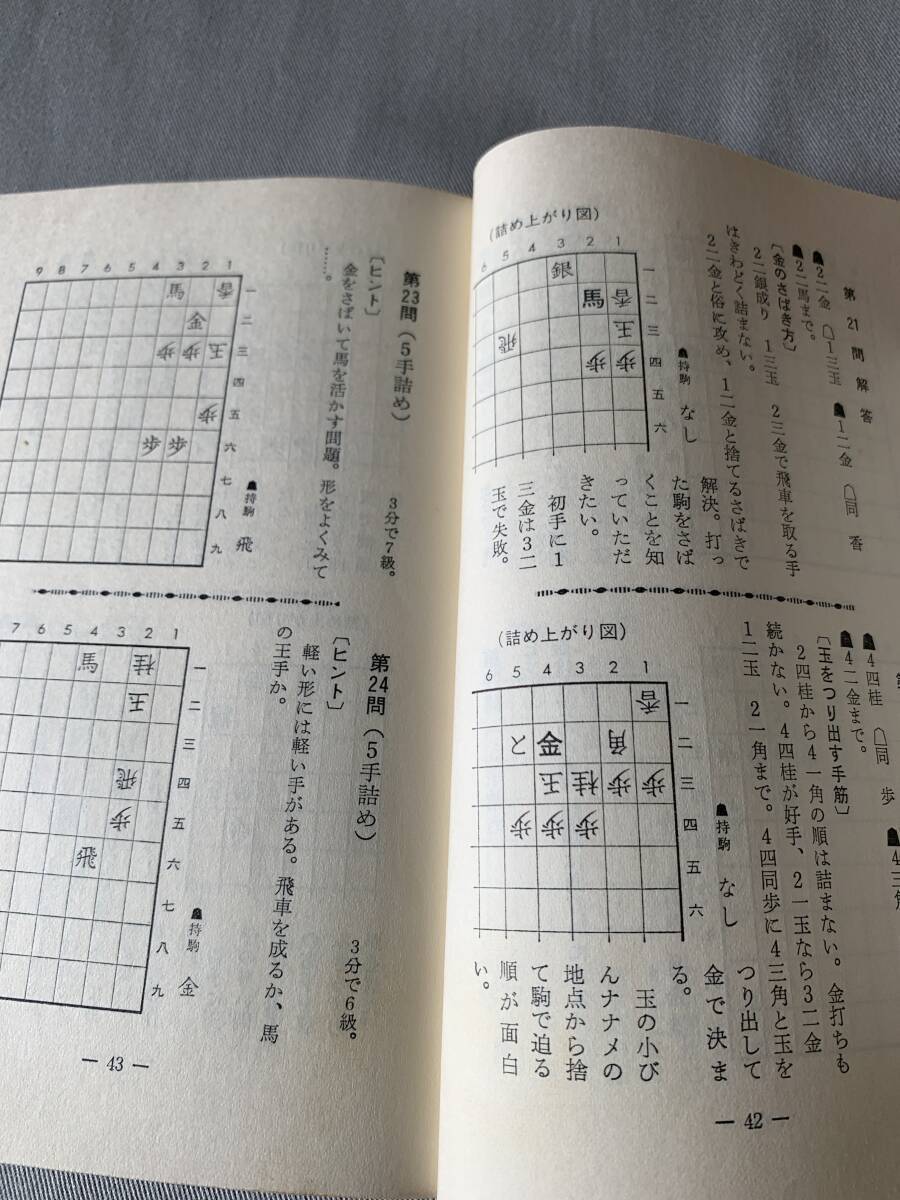 第21問解答
☗2二金 ☖1三玉 ☗1二金 ☖同香
☗2二馬まで。
〔金のさばき方〕
2二銀成り 1三玉 2三金で飛車を取る手
はきわどく詰まない。
2二金と俗に攻め、1二金と捨てるさばきで
解決。打っ
た駒をさば
くことを知
っていただ
きたい。
初手に1
三金は3二
玉で失敗。
(詰め上がり図)
6 5 4 3 2 1
銀
馬 香
玉
飛
歩 歩
一
二
三
四
五
六
☗持駒 なし
☗4四桂 ☖同歩
☗4二金まで。
〔玉をつり出す手筋〕
2四桂から4一角の順は詰まない。金打ちも
続かない。4四桂が好手、2一玉なら3二金
1二玉 2一角まで。4四同歩に4三角と玉を
つり出して
金で決ま
る。
玉の小び
んナナメの
地点から捨
て駒で迫る
順が面白
い。
(詰め上がり図)
6 5 4 3 2 1
香
と 金 角
玉 桂 歩 歩
歩 歩 歩
一
二
三
四
五
六
☗持駒 なし
— 42 —
第23問(5手詰め)
3分で7級。
〔ヒント〕
金をさばいて馬を活かす問題。形をよくみて
……。
9 8 7 6 5 4 3 2 1
馬 香
金
歩 歩 玉
歩
歩 歩
一
二
三
四
五
六
七
八
九
☗持駒 飛
第24問(5手詰め)
3分で6級。
〔ヒント〕
軽い形には軽い手がある。飛車を成るか、馬
の王手か。
7 6 5 4 3 2 1
馬 桂
玉
飛
歩
飛
一
二
三
四
五
六
七
八
九
☗持駒 金
— 43 —